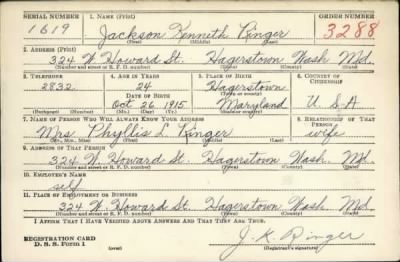 SERIAL NUMBER 1. NAME (Print) ORDER NUMBER
1619 Jackson Kenneth Ringer 3288
(First) (Middle) (Last)
2. ADDRESS (Print)
324 W. Howard St. Hagerstown Wash Md.
(Number and street or R. F. D. number) (Town) (County) (State)
3. TELEPHONE 4. AGE IN YEARS 5. PLACE OF BIRTH 6. COUNTRY OF CITIZENSHIP
2832 24 Hagerstown
DATE OF BIRTH (Town or county)
Oct 26 1915 Maryland U-S-A
(Exchange) (Number) (Mo.) (Day) (Yr.) (State or country)
7. NAME OF PERSON WHO WILL ALWAYS KNOW YOUR ADDRESS 8. RELATIONSHIP OF THAT PERSON
Mrs. Phyllis L Ringer wife
(Mr., Mrs., Miss) (First) (Middle) (Last)
9. ADDRESS OF THAT PERSON
324 W. Howard St. Hagerstown Wash. Md.
(Number and street or R. F. D. number) (Town) (County) (State)
10. EMPLOYER'S NAME
self
11. PLACE OF EMPLOYMENT OR BUSINESS
324 W. Howard St. Hagerstown Wash Md
(Number and street or R. F. D. number) (Town) (County) (State)
I AFFIRM THAT I HAVE VERIFIED ABOVE ANSWERS AND THAT THEY ARE TRUE.
REGISTRATION CARD J. K Ringer
D. S. S. Form 1 (over) (Registrant's signature)